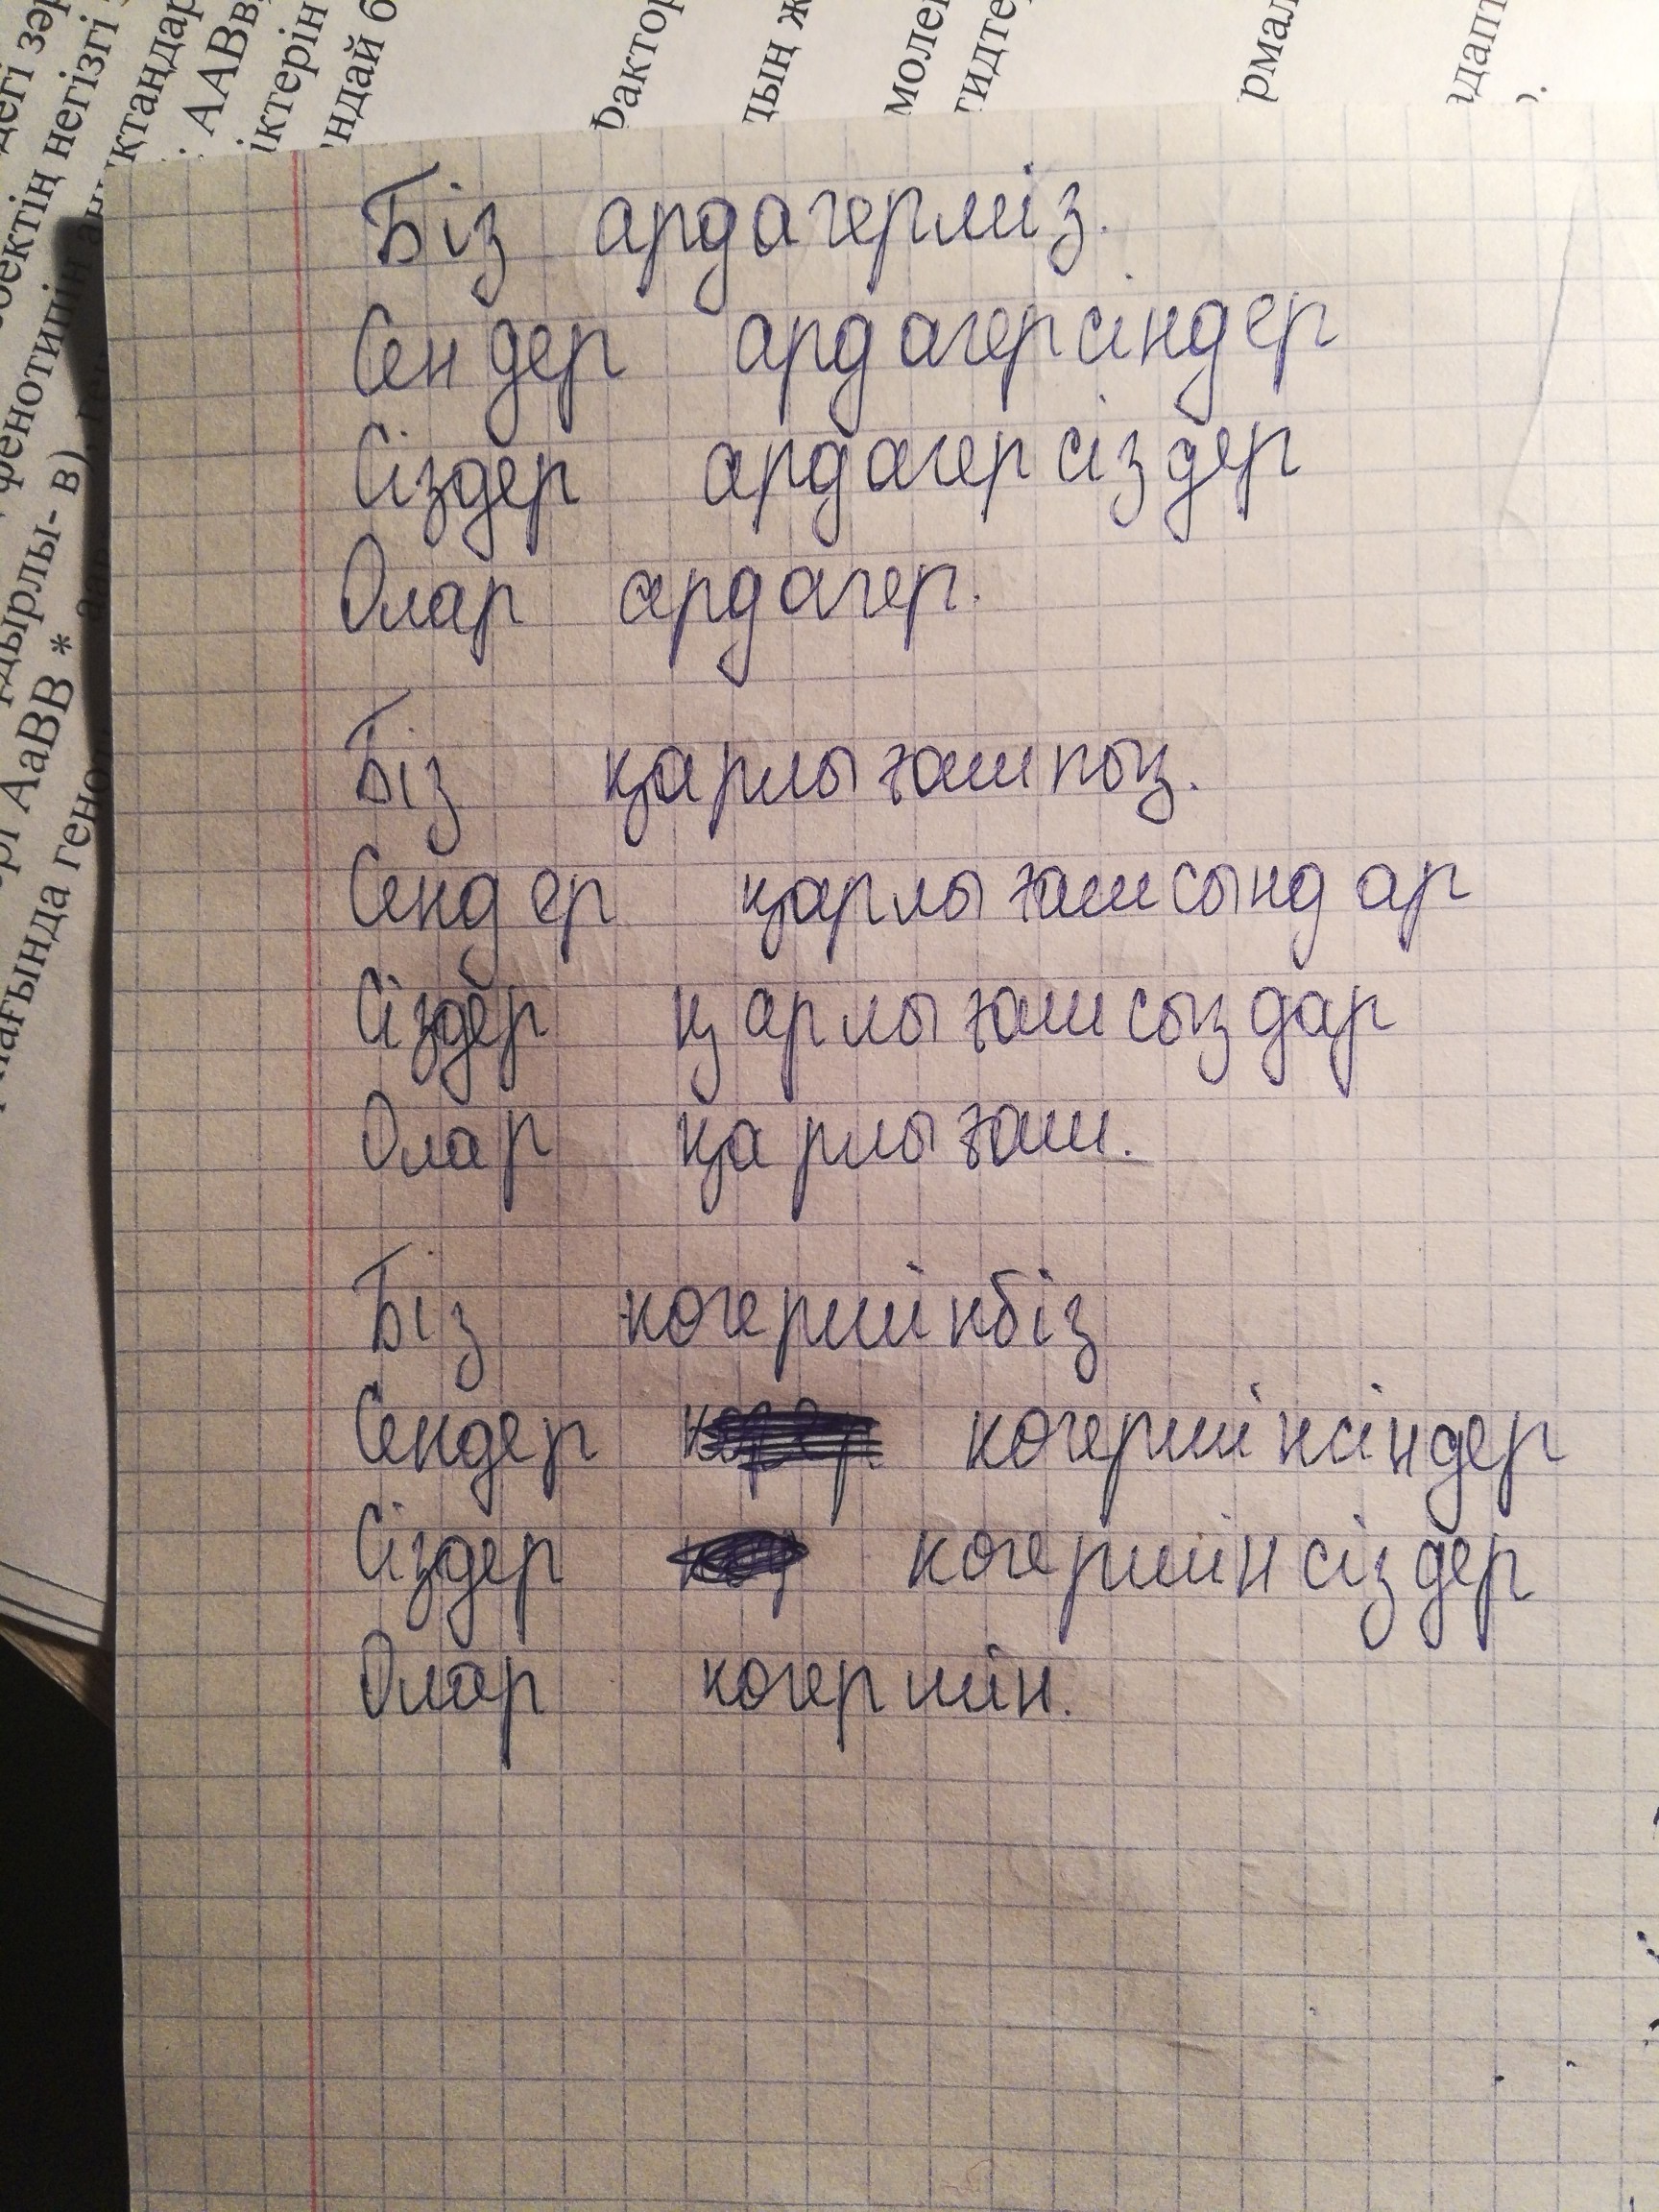 Біз ардагерміз.
Сендер ардагерсіндер
Сіздер ардагерсіздер
Олар ардагер.
Біз қарлығашпыз.
Сендер қарлығашсындар
Сіздер қарлығашсыздар
Олар қарлығаш.
Біз когершінбіз
Сендер когершінсіндер
Сіздер когершінсіздер
Олар когершін.